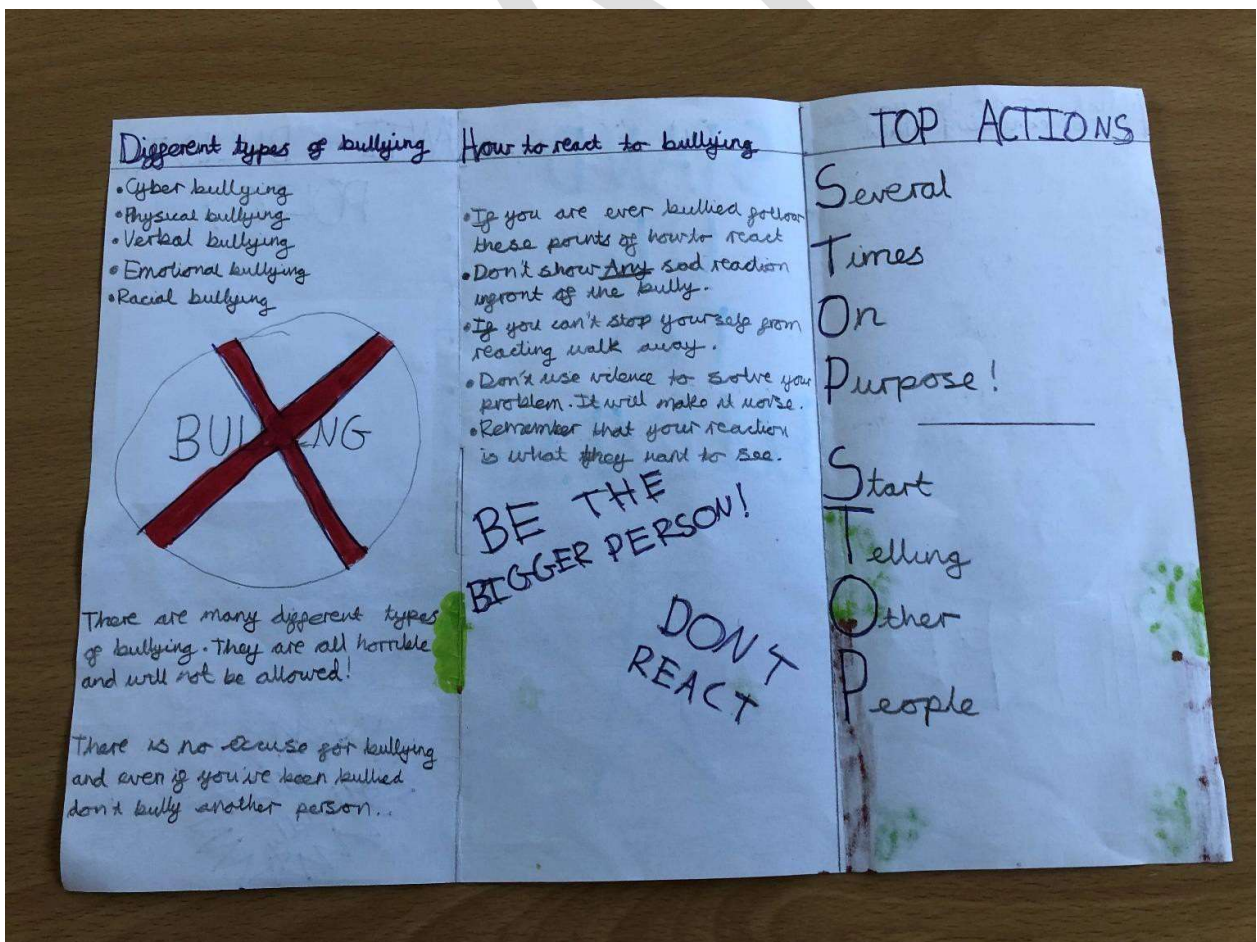 Different types of bullying
• Cyber bullying
• Physical bullying
• Verbal bullying
• Emotional bullying
• Racial bullying
BULLING
There are many different types
of bullying. They are all horrible
and will not be allowed!
There is no excuse for bullying
and even if you've been bullied
don't bully another person..
How to react to bullying
• If you are ever bullied follow
these points of how to react
• Don't show Any sad reaction
infront of the bully.
• If you can't stop yourself from
reacting walk away.
• Don't use vilence to solve your
problem. It will make it worse.
• Remember that your reaction
is what they want to see.
BE THE
BIGGER PERSON!
DON'T
REACT
TOP ACTIONS
Several
Times
On
Purpose!
Start
Telling
Other
People